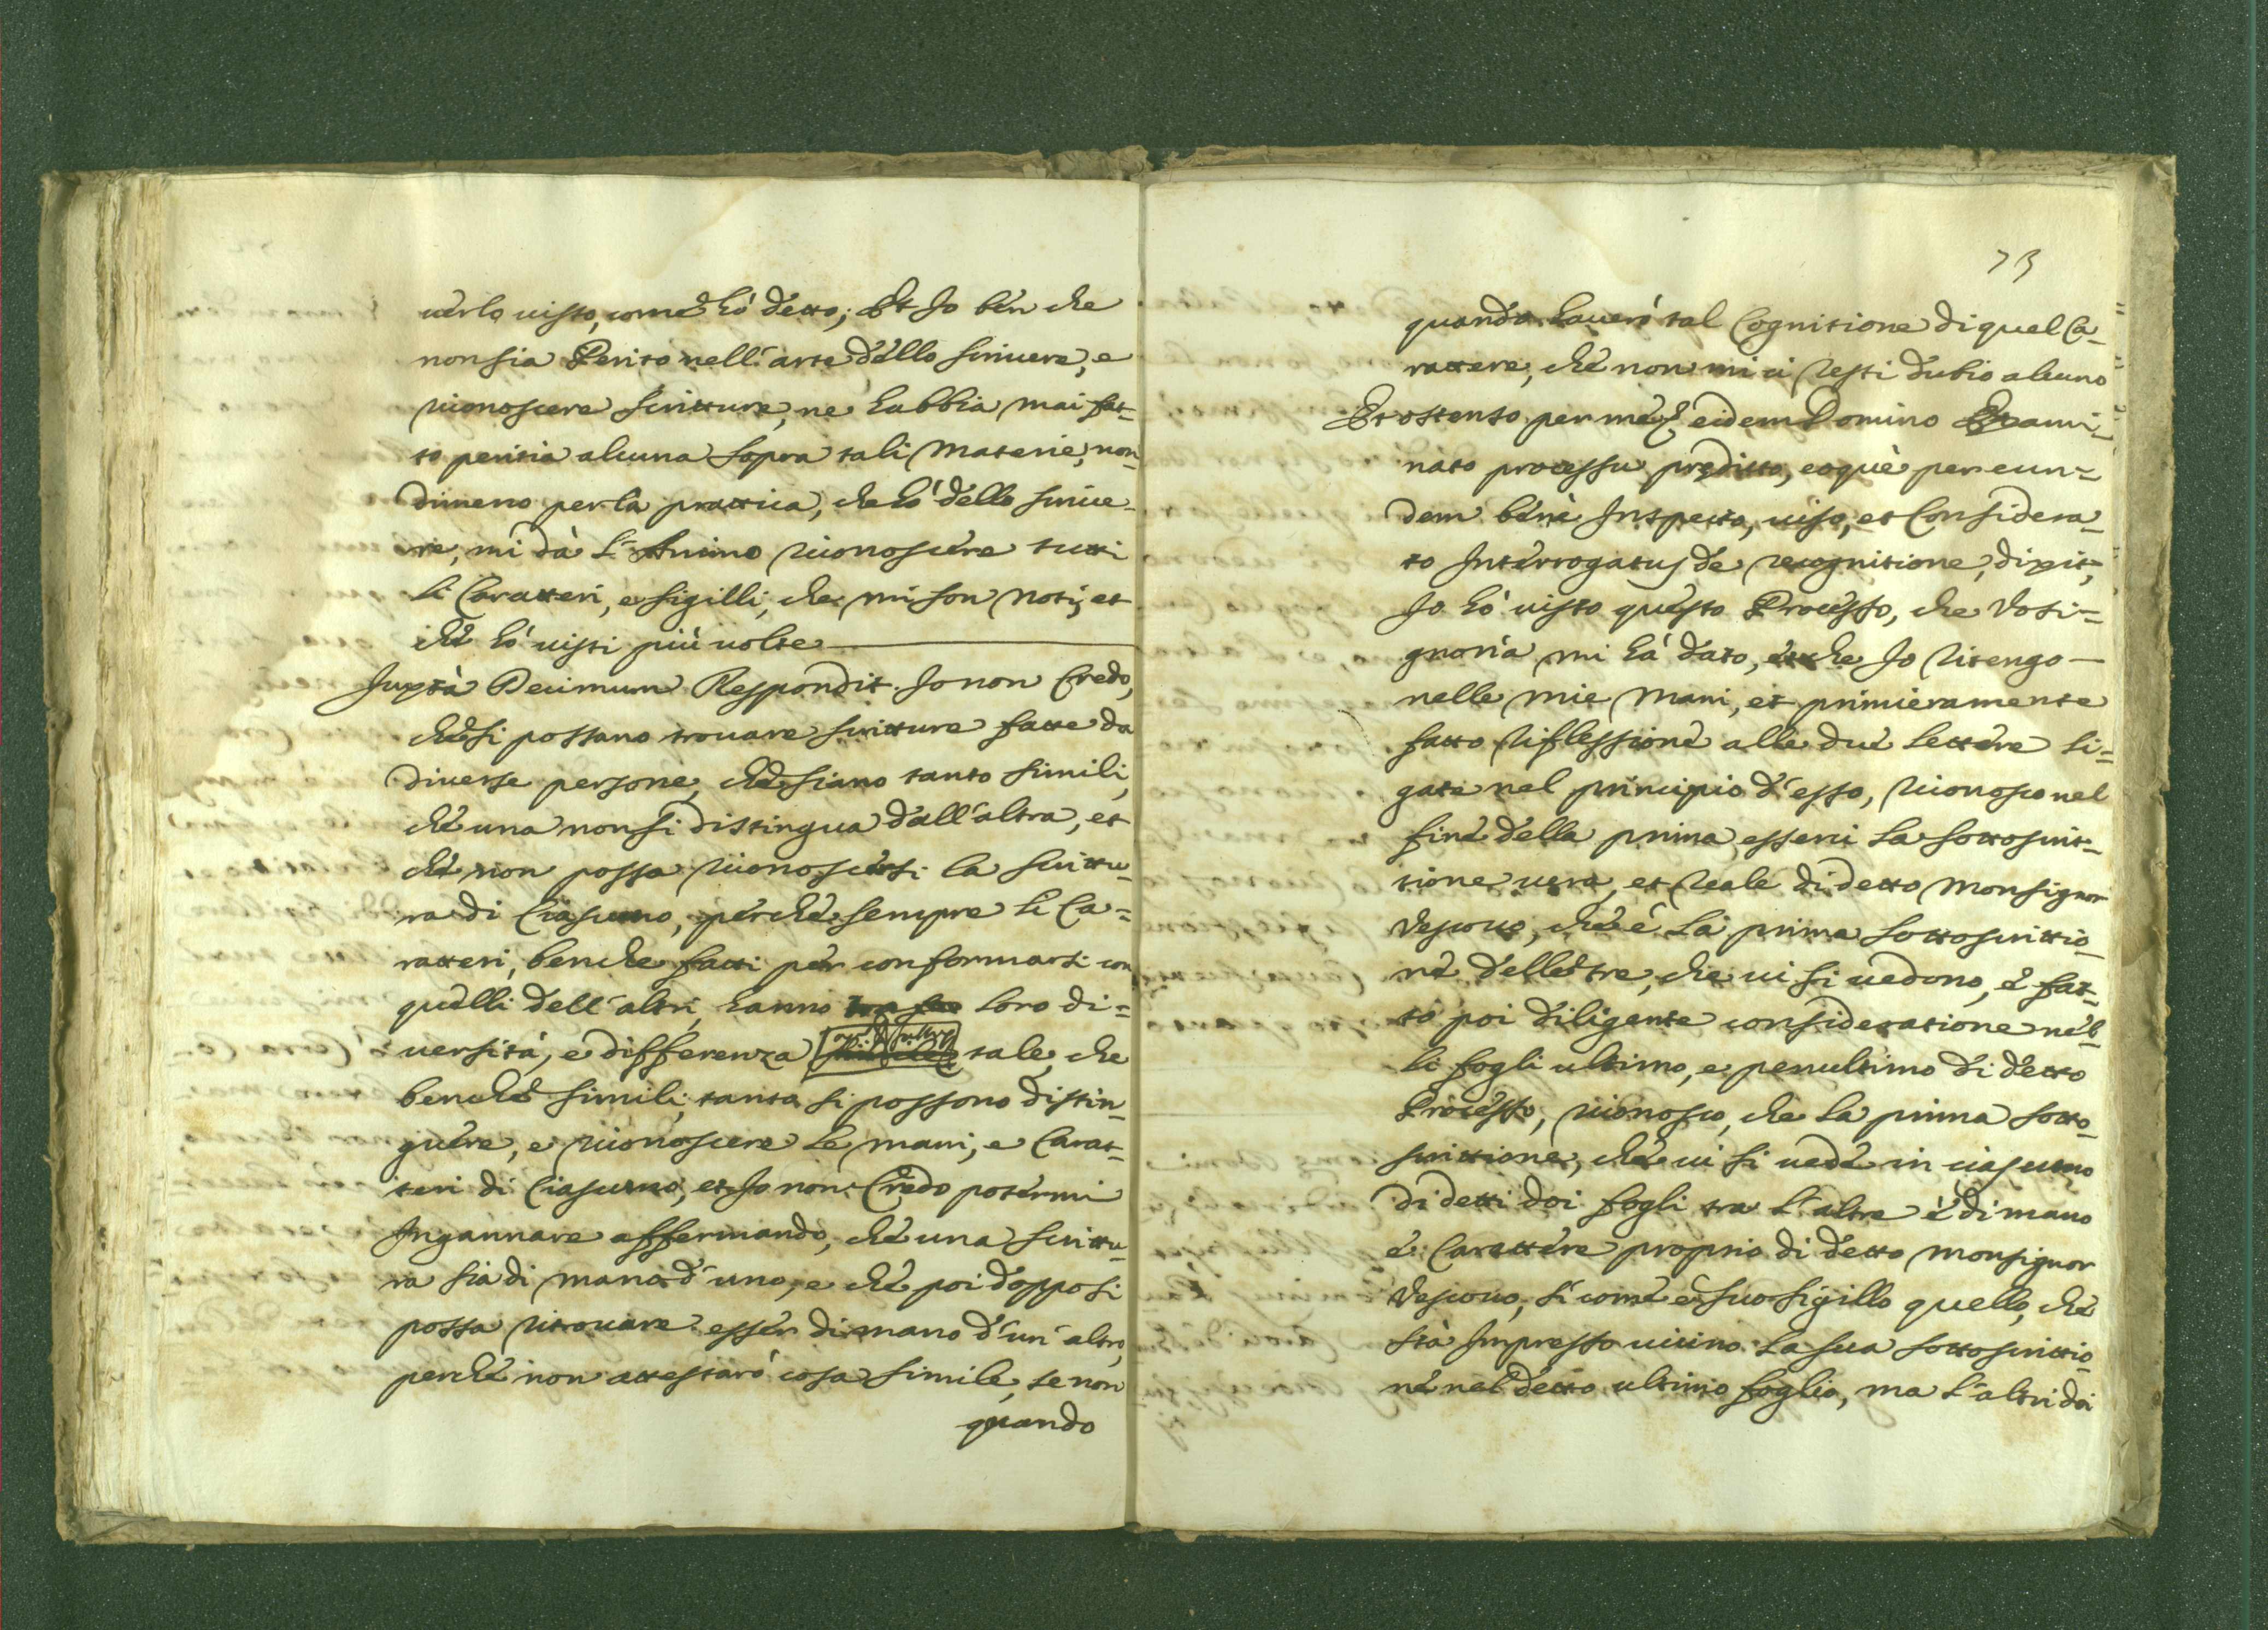 uerlo uisto, come hò detto; Et Io ben che
non sia Perito nell'arte dello scriuere, e
riconoscere scritture, ne habbia mai fat-
to peritia alcuna sopra tali materie, non
dimeno per la prattica, che hò dello scriue-
re, mi dà l'Animo riconoscere tutti
li Caratteri, e sigilli, che mi son noti, et
che hò uisti più uolte
Juxtà Decimum Respondit. Io non Credo,
che si possano trouare scritture fatte da
diuerse persone, che siano tanto simili,
che una non si distingua dall'altra, et
che non possa riconoscersi la scrittu-
ra di Ciascuno, perche sempre li Ca=
ratteri, benche fatti per conformarsi con
quelli dell'altri, hanno loro di=
uersità, e differenza tale, che
benche simili, tanto si possono distin-
guere, e riconoscere le mani, e Carat-
teri di Ciascuno, et Io non Credo potermi
Ingannare affermando, che una scrittu-
ra sia di mano d'uno, e che poi doppo si
possa ritrouare esser di mano d'un'altro,
perche non attestarò cosa simile, se non
quando
73
quando hauerò tal Cognitione di quel Ca-
rattere, che non mi ci resti dubio alcuno
Et ostenso per me eidem Domino Exami-
nato processu predicto, eoquè per eun=
dem benè Inspecto, uiso, et Considera-
to Interrogatus de recognitione, dixit,
Io hò uisto questo Processo, che Vosi=
gnoria mi hà dato, et che Io ritengo
nelle mie mani, et primieramente
fatto riflessione alle due lettere li=
gate nel principio d'esso, riconosco nel
fine della prima esserui la sottoscrit-
tione uera, et reale di detto Monsignor
Vescouo, che è la prima sottoscrittio-
ne delle tre, che ui si uedono, e fat-
to poi diligente consideratione nel-
li fogli ultimo, e penultimo di detto
Processo, riconosco, che la prima sotto-
scrittione, che ui si uede in ciascuno
di detti doi fogli tra l'altre è di mano
e Carattere proprio di detto Monsignor
Vescouo, sì come è suo sigillo quello, che
stà Impresso uicino la sua sottoscrittio-
ne nel detto ultimo foglio, ma l'altri doi